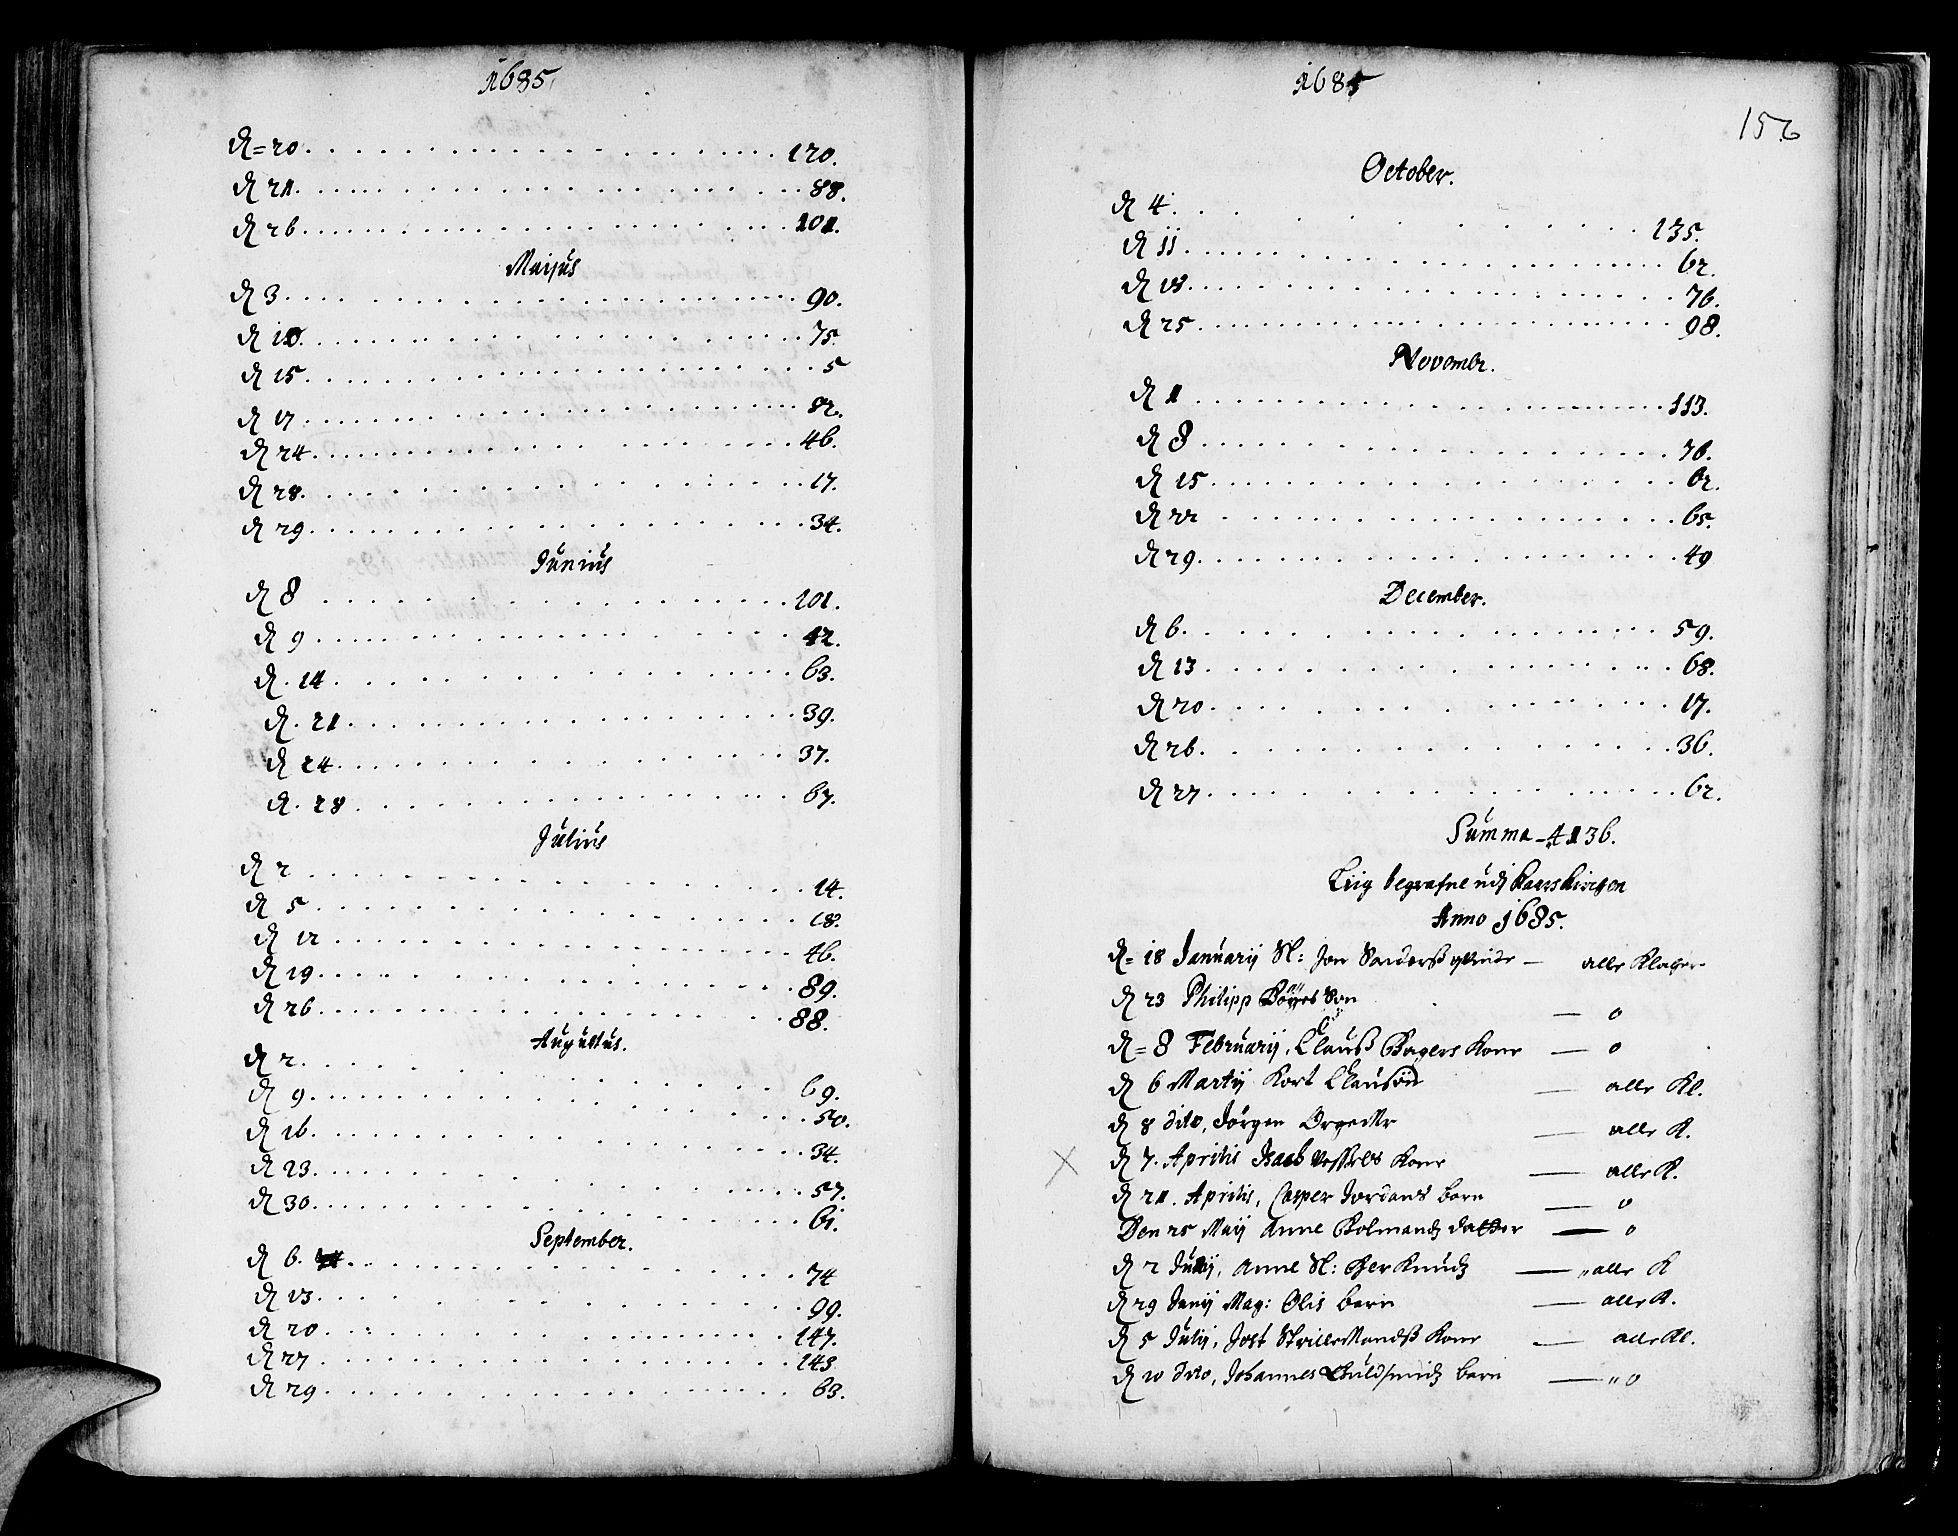 1685
d 20 . . . 120.
d 21 . . . 88.
d 26 . . . 101.
Maijus
d 3 . . . 90.
d 10 . . . 75.
d 15 . . . 5
d 17 . . . 82.
d 24 . . . 46.
d 28 . . . 17.
d 29 . . . 34.
Junius
d 8 . . . 101.
d 9 . . . 42.
d. 14 . . . 63.
d. 21 . . . 39.
d 24 . . . 37.
d. 28 . . . 67.
Julius
d 2 . . . 14.
d 5 . . . 18.
d 12 . . . 46.
d 19 . . . 89.
d 26 . . . 88.
Augustus.
d 2 . . . 69.
d 9 . . . 50.
d 16 . . . 34.
d 23 . . . 57.
d 30 . . . 61.
September.
d 6. . . . 74
d 13 . . . 99.
d 20 . . . 147.
d 27 . . . 143
d 29 . . . 63.
1685
156
October.
d 4 . . . 135.
d 11 . . . 62.
d 18 . . . 76.
d 25 . . . 98.
Novembr.
d 1 . . . 113.
d 8 . . . 76.
d 15 . . . 62.
d 22 . . . 65.
d 29 . . . 49
December.
d 6 . . . 59.
d 13 . . . 68.
d 20 . . . 17.
d 26 . . . 36.
d 27 . . . 62.
Summa - 4136.
Liig begrafne udj Kaarskirchen
Anno 1685.
d= 18 Januarij Sl: Jon — alle Klocher
d 23 Philipp Son — o
d= 8 Februarij, Clauß Bagers Kone — o
d 6 Martij Kort Clausøn — alle Kl.
d 8 dito, Jørgen — alle K.
d 7. Aprilis Isaab Kone — alle K.
d 21. Aprilis, Casper Jordans barn — o
Den 25 Maij Anne datter — o
d 2 Junij, Anne Sl: Per Knudz — alle K
d 29 Junij Mag: Olis barn — alle K.
d 5 Julij, Jost Kone — alle Kl.
d 10 dito, Johannes Guldsmidz barn — o